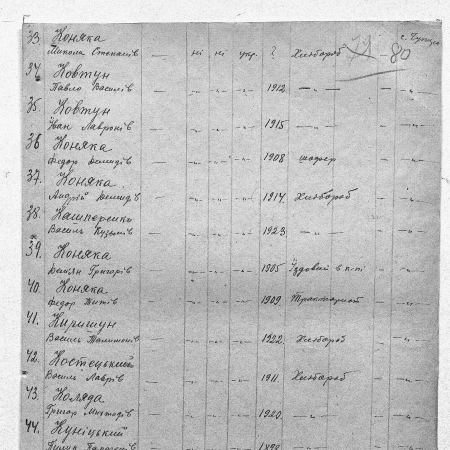 33. Коняка
Микола Степанів — ні ні укр. ? Хлібороб 80
34. Ковтун
Павло Василів — -"- -"- -"- 1912. — " — — -"-
35. Ковтун
Іван — -"- -"- -"- 1915 — " — — -"-
36 Коняка
Федор Демидів — -"- -"- -"- 1908 шофер — -"-
37. Коняка
Андрій Демидів — -"- -"- -"- 1914. Хлібороб — -"-
38.
Василь Кузьмів — -"- -"- -"- 1923. — " — — -"-
39. Коняка
Демян Григорів — -"- -"- -"- 1905 Їздовий в — -"-
40. Коняка
Федор Титів — -"- -"- -"- 1909 Тракторист — -"-
41. Киришун
Василь — -"- -"- -"- 1922. Хлібороб — -"-
42. Костецький
Василь Лаврів — -"- -"- -"- 1911. Хлібороб — -"-
43. Коляда
Григор — -"- -"- -"- 1920. — " — — -"-
44. Куніцький